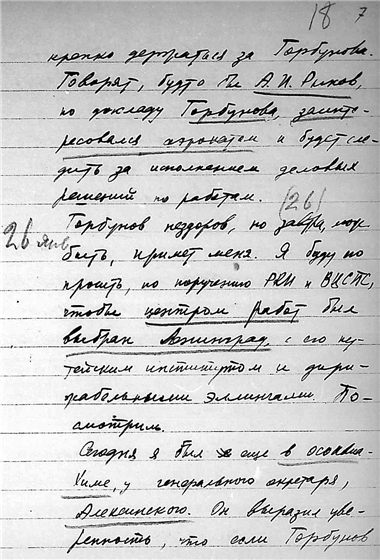 18 7
крепко держаться за Горбунова.
Говорят, будто бы А.И. Рыков,
по докладу Горбунова, заинте-
ресовался аэронатом и будет сле-
дить за исполнением деловых
решений по работам. (26)
Горбунов нездоров, но завтра, мож.
26 янв
быть, примет меня. Я буду по
просить, по поручению РКИ и ВЦСПС,
чтобы центром работ был
выбран Ленинград, с его
институтом и дири-
жабельными эллингами. По-
смотрим.
Сегодня я был еще в Осоавиа-
химе, у генерального секретаря,
Он выразил уве-
ренность, что если Горбунов